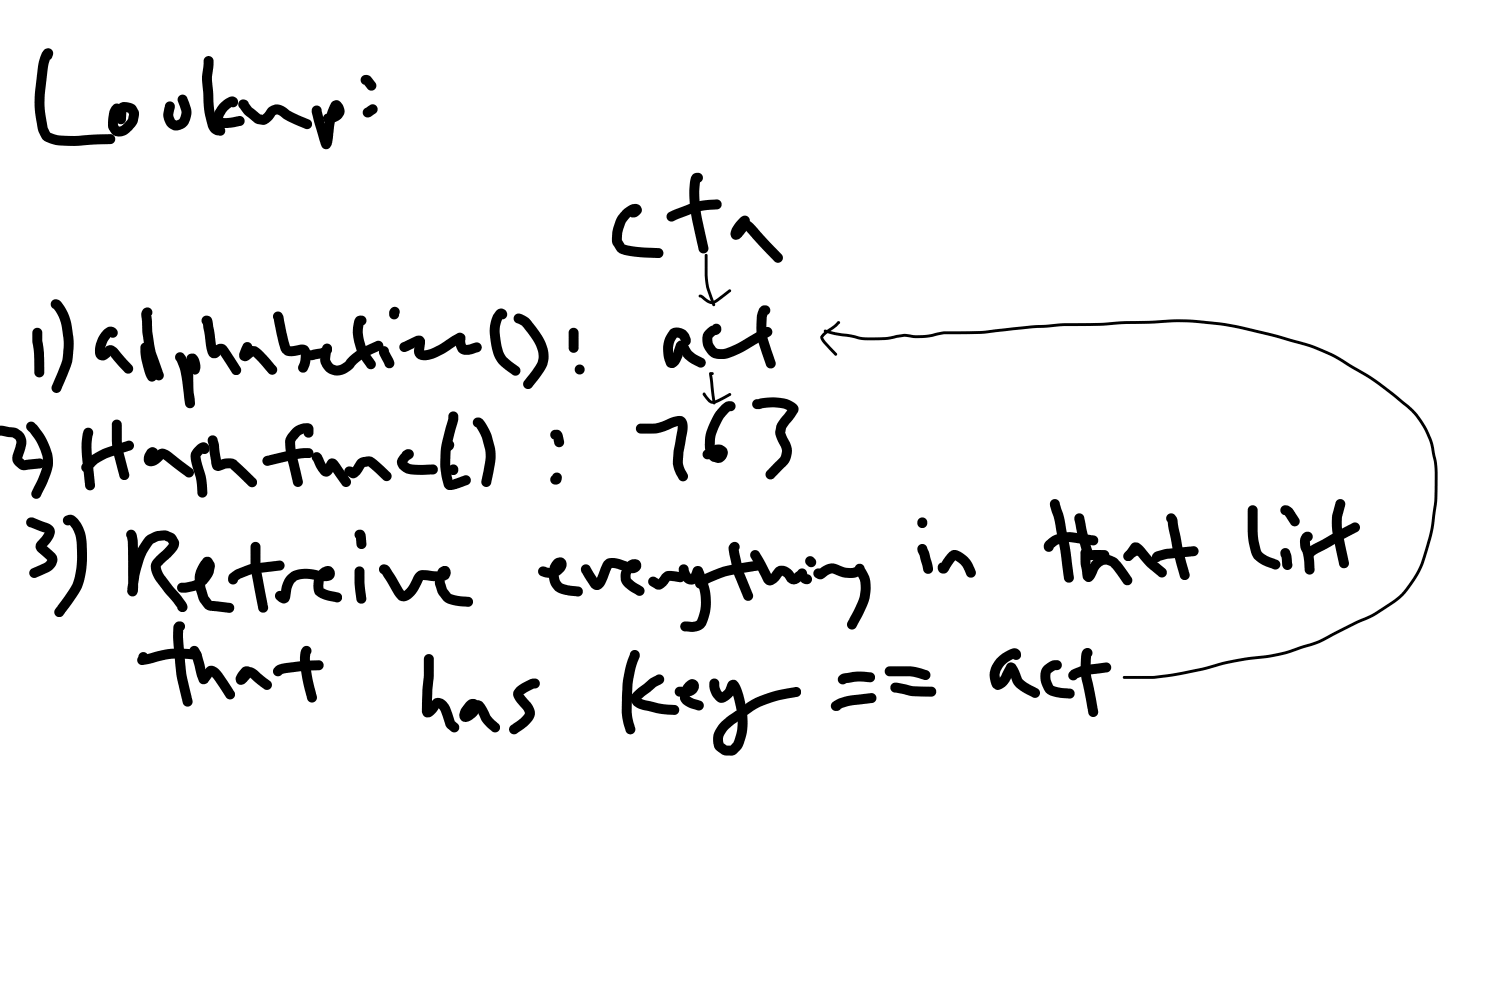 Lookup:
cta
1) alphabetize(): act
2) Hashfunc() : 763
3) Retreive everything in that list
that has key == act